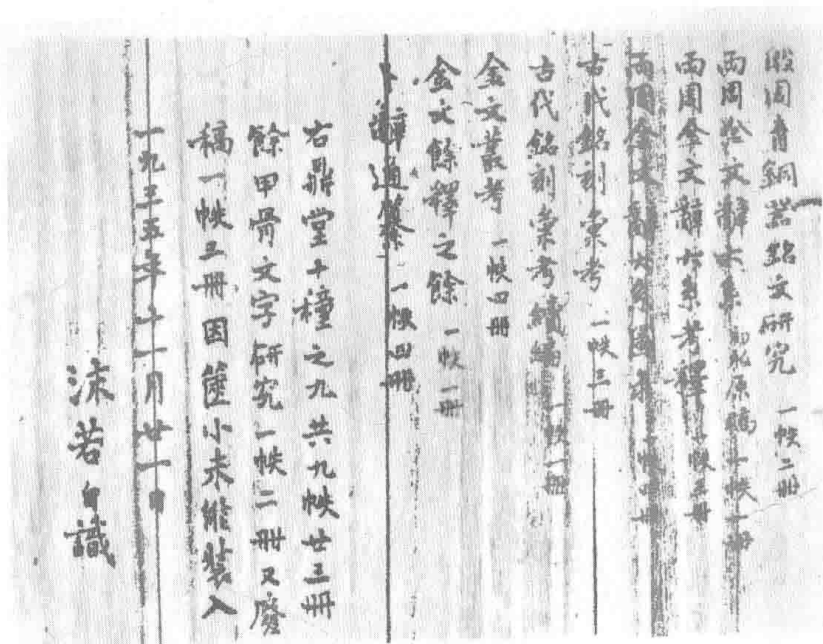 殷周青銅器銘文研究 一帙二冊
兩周金文辭大系 初版原稿 一帙一冊
兩周金文辭大系考釋 一帙三冊
兩周金文辭大系圖录 一帙四冊
古代銘刻彙考 一帙三冊
古代銘刻彙考續編 一帙一冊
金文叢考 一帙四冊
金文餘釋之餘 一帙一冊
卜辭通纂 一帙四冊
右鼎堂十種之九共九帙廿三冊
餘甲骨文字研究一帙二冊又廢
稿一帙三冊因篋小未能裝入
一九三五年十一月廿一日
沫若自識